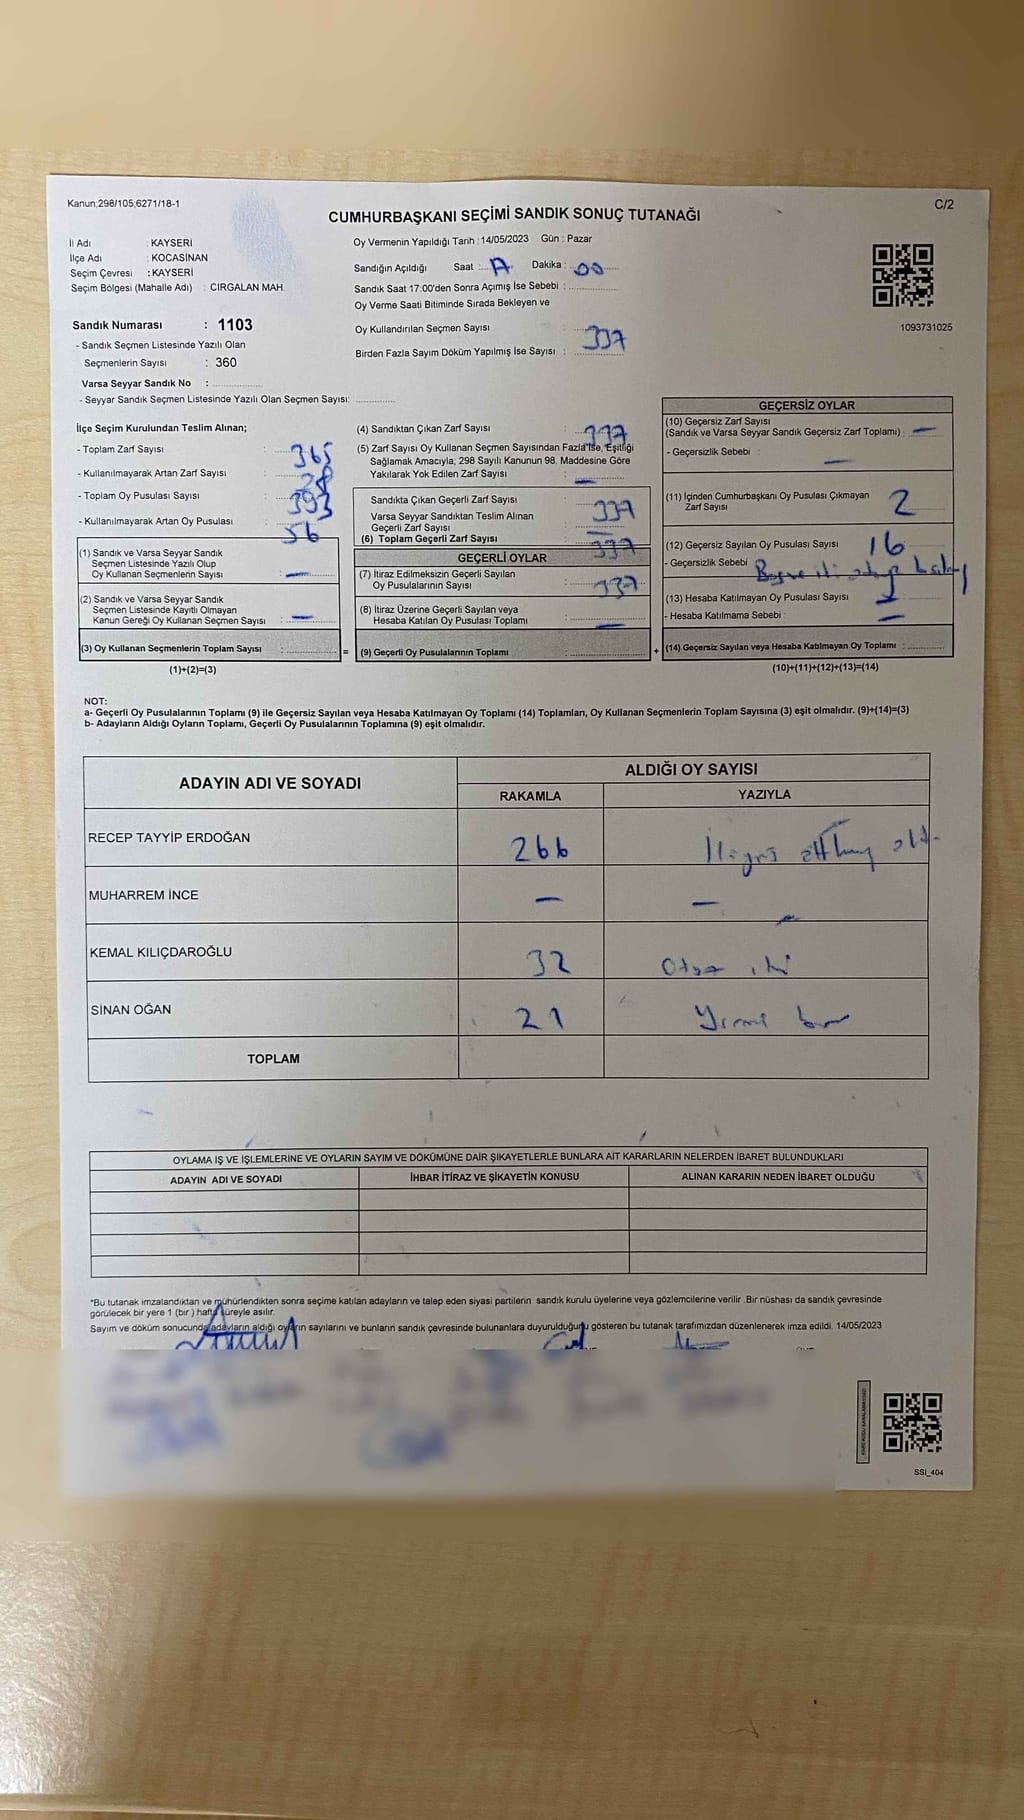 Kanun;298/105,6271/18-1
C/2
CUMHURBAŞKANI SEÇİMİ SANDIK SONUÇ TUTANAĞI
İl Adı : KAYSERİ
İlçe Adı : KOCASİNAN
Seçim Çevresi : KAYSERİ
Seçim Bölgesi (Mahalle Adı) : CIRGALAN MAH.
Sandık Numarası : 1103
- Sandık Seçmen Listesinde Yazılı Olan
Seçmenlerin Sayısı : 360
Varsa Seyyar Sandık No :
- Seyyar Sandık Seçmen Listesinde Yazılı Olan Seçmen Sayısı:
Oy Vermenin Yapıldığı Tarih : 14/05/2023 Gün : Pazar
Sandığın Açıldığı Saat : Dakika : 00
Sandık Saat 17:00'den Sonra Açımış İse Sebebi :
Oy Verme Saati Bitiminde Sırada Bekleyen ve
Oy Kullandırılan Seçmen Sayısı :
337
Birden Fazla Sayım Döküm Yapılmış İse Sayısı :
1093731025
İlçe Seçim Kurulundan Teslim Alınan;
- Toplam Zarf Sayısı : 365
- Kullanılmayarak Artan Zarf Sayısı : 28
- Toplam Oy Pusulası Sayısı : 393
- Kullanılmayarak Artan Oy Pusulası : 56
(1) Sandık ve Varsa Seyyar Sandık
Seçmen Listesinde Yazılı Olup
Oy Kullanan Seçmenlerin Sayısı : —
(2) Sandık ve Varsa Seyyar Sandık
Seçmen Listesinde Kayıtlı Olmayan
Kanun Gereği Oy Kullanan Seçmen Sayısı : —
(3) Oy Kullanan Seçmenlerin Toplam Sayısı : =
(1)+(2)=(3)
(4) Sandıktan Çıkan Zarf Sayısı : 337
(5) Zarf Sayısı Oy Kullanan Seçmen Sayısından Fazla İse, Eşitliği
Sağlamak Amacıyla; 298 Sayılı Kanunun 98. Maddesine Göre
Yakılarak Yok Edilen Zarf Sayısı : —
Sandıkta Çıkan Geçerli Zarf Sayısı : 337
Varsa Seyyar Sandıktan Teslim Alınan
Geçerli Zarf Sayısı : —
(6) Toplam Geçerli Zarf Sayısı : 337
GEÇERLİ OYLAR
(7) İtiraz Edilmeksizin Geçerli Sayılan
Oy Pusulalarının Sayısı : 337
(8) İtiraz Üzerine Geçerli Sayılan veya
Hesaba Katılan Oy Pusulası Toplamı : —
(9) Geçerli Oy Pusulalarının Toplamı : +
GEÇERSİZ OYLAR
(10) Geçersiz Zarf Sayısı
(Sandık ve Varsa Seyyar Sandık Geçersiz Zarf Toplamı) : —
- Geçersizlik Sebebi : —
(11) İçinden Cumhurbaşkanı Oy Pusulası Çıkmayan
Zarf Sayısı 2
(12) Geçersiz Sayılan Oy Pusulası Sayısı : 16
- Geçersizlik Sebebi :
(13) Hesaba Katılmayan Oy Pusulası Sayısı :
- Hesaba Katılmama Sebebi : —
(14) Geçersiz Sayılan veya Hesaba Katılmayan Oy Toplamı :
(10)+(11)+(12)+(13)=(14)
NOT:
a- Geçerli Oy Pusulalarının Toplamı (9) ile Geçersiz Sayılan veya Hesaba Katılmayan Oy Toplamı (14) Toplamları, Oy Kullanan Seçmenlerin Toplam Sayısına (3) eşit olmalıdır. (9)+(14)=(3)
b- Adayların Aldığı Oyların Toplamı, Geçerli Oy Pusulalarının Toplamına (9) eşit olmalıdır.
ADAYIN ADI VE SOYADI
ALDIĞI OY SAYISI
RAKAMLA YAZIYLA
RECEP TAYYİP ERDOĞAN 266
MUHARREM İNCE — —
KEMAL KILIÇDAROĞLU 32 Otuz iki
SİNAN OĞAN 21 Yirmi bir
TOPLAM
OYLAMA İŞ VE İŞLEMLERİNE VE OYLARIN SAYIM VE DÖKÜMÜNE DAİR ŞİKAYETLERLE BUNLARA AİT KARARLARIN NELERDEN İBARET BULUNDUKLARI
ADAYIN ADI VE SOYADI İHBAR İTİRAZ VE ŞİKAYETİN KONUSU ALINAN KARARIN NEDEN İBARET OLDUĞU
*Bu tutanak imzalandıktan ve mühürlendikten sonra seçime katılan adayların ve talep eden siyasi partilerin sandık kurulu üyelerine veya gözlemcilerine verilir .Bir nüshası da sandık çevresinde
görülecek bir yere 1 (bir ) hafta süreyle asılır.
Sayım ve döküm sonucunda adayların aldığı oyların sayılarını ve bunların sandık çevresinde bulunanlara duyurulduğunu gösteren bu tutanak tarafımızdan düzenlenerek imza edildi. 14/05/2023
SSI_404